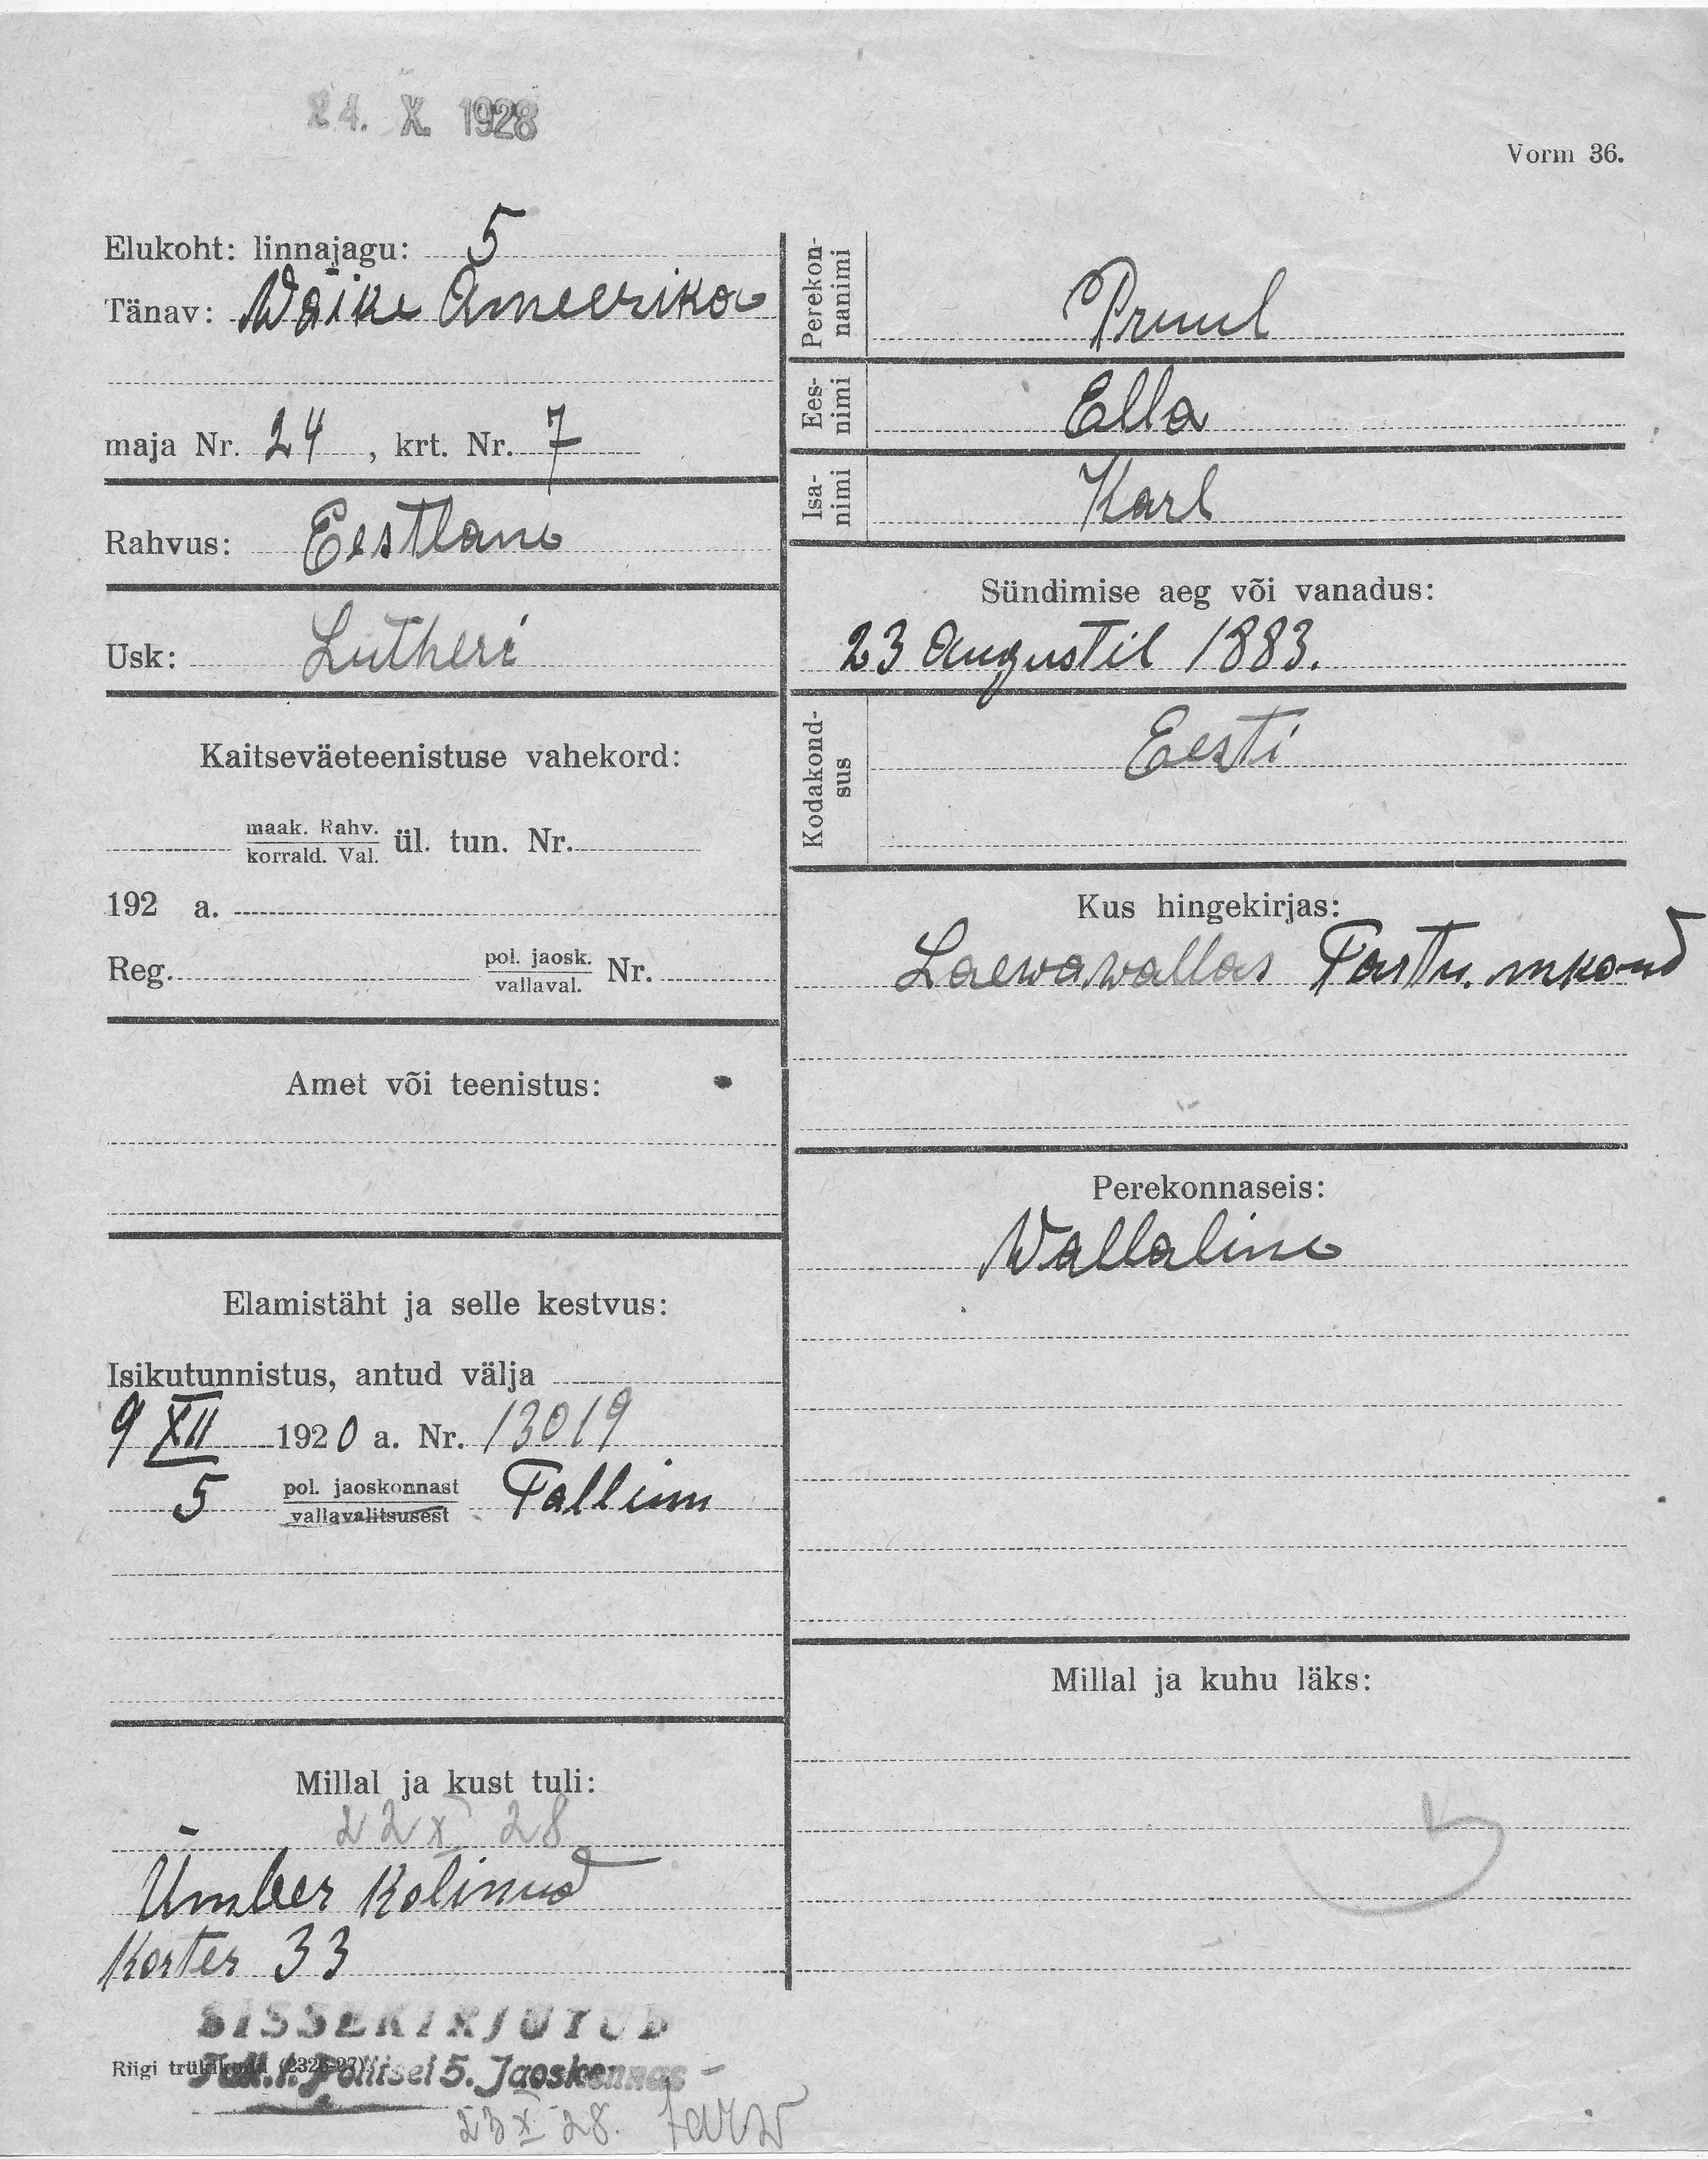 24. X. 1928
Vorm 36.
Elukoht: linnajagu: 5
Tänav: Wäike Ameerika
maja Nr. 24, krt. Nr. 7
Rahvus: Eestlane
Usk: Lutheri
Kaitseväeteenistuse vahekord:
maak. Rahv.
korrald. Val. ül. tun. Nr.
192 a.
Reg. pol. jaosk.
vallaval. Nr.
Amet või teenistus:
Elamistäht ja selle kestvus:
Isikutunnistus, antud välja
9 XII 1920 a. Nr. 13019
5 pol. jaoskonnast Tallinn
vallavalitsusest
Millal ja kust tuli:
22 X 28
Ümber Kolinud
Korter 33
SISSEKIRJUTUD
Tall. l. Politsei 5. Jaoskonnas
Riigi trükikoda (2325-27)
23 X 28.
Perekon-
nanimi
Pruul
Ees-
nimi
Ella
Isa-
nimi
Karl
Sündimise aeg või vanadus:
23 Augustil 1883.
Kodakond-
sus
Eesti
Kus hingekirjas:
Laewa wallas Tartu. mkond
Perekonnaseis:
Wallaline
Millal ja kuhu läks:
5